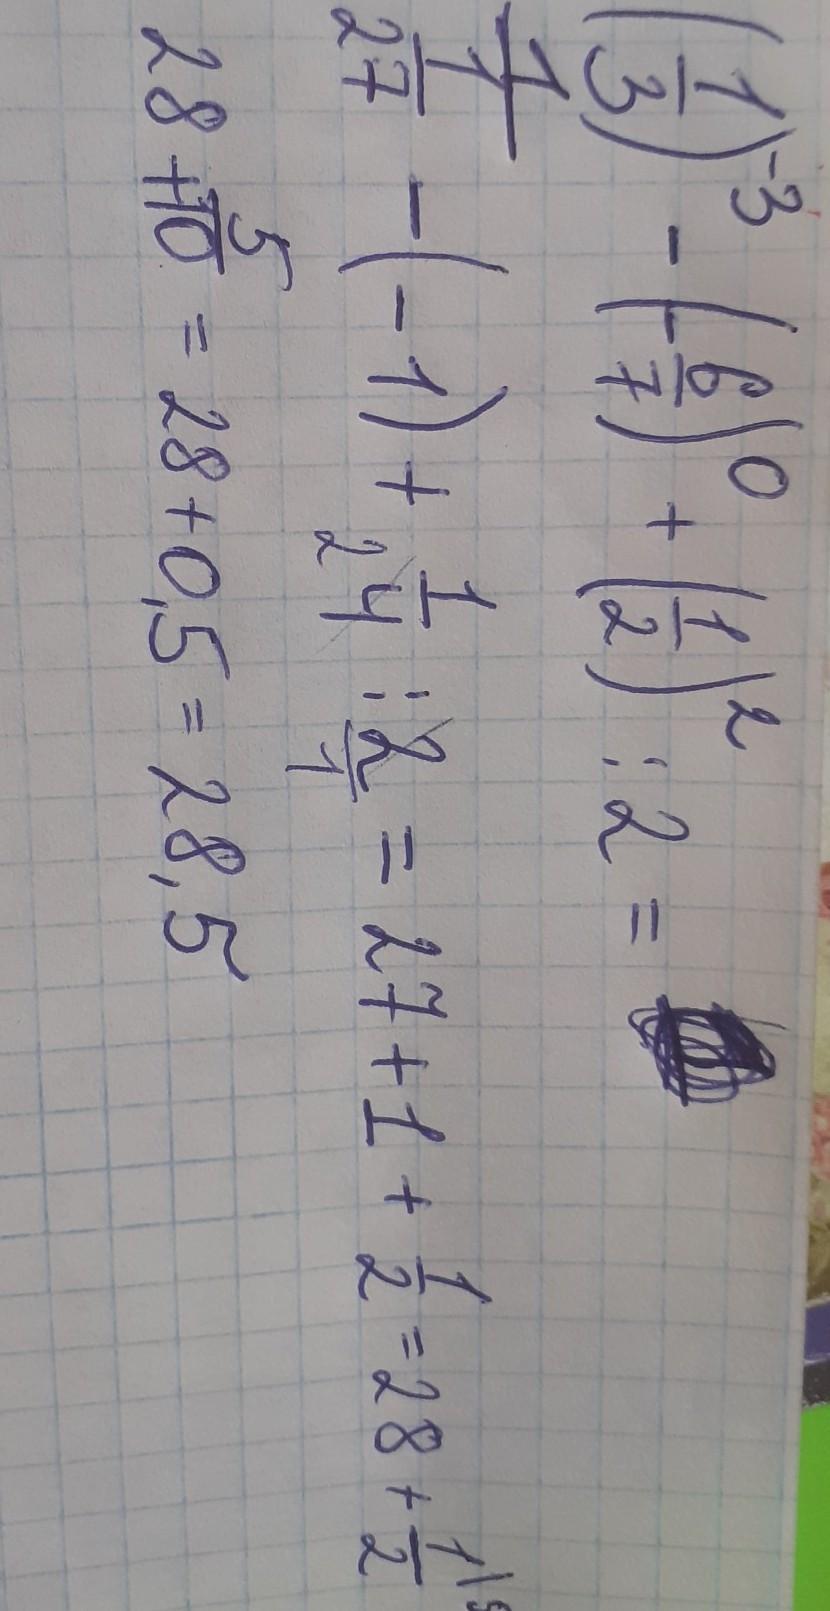 (1/3)^-3 - (-6/7)^0 + (1/2)^2 : 2 =
1/(1/27) - (-1) + 1/4 : 2/1 = 27 + 1 + 1/2 = 28 + 1/2
28 + 5/10 = 28 + 0,5 = 28,5